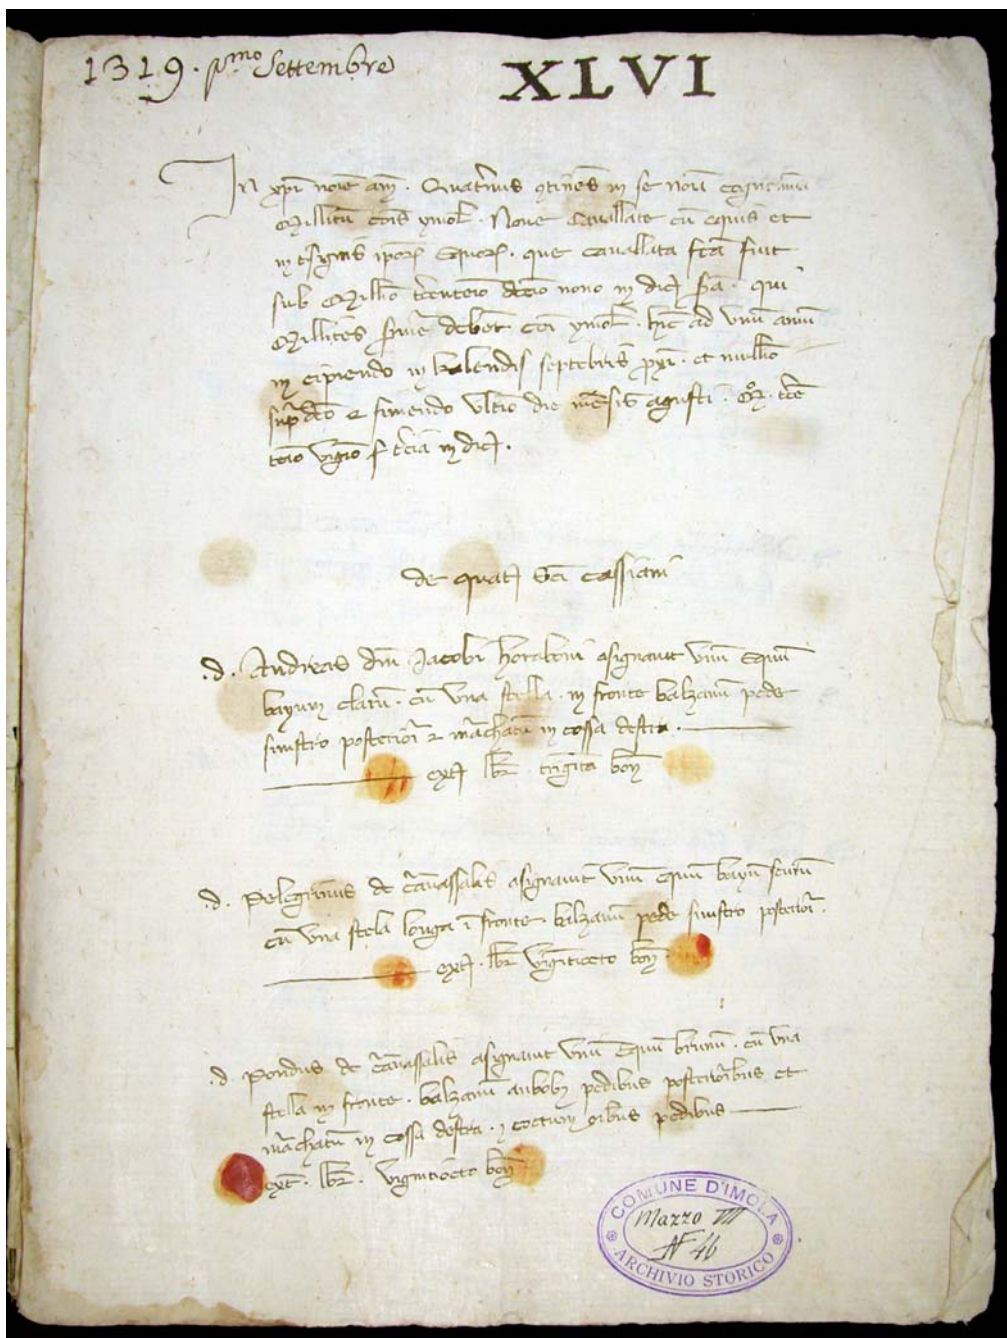 1319. p.mo Settembre
XLVI
In xpi noie am. Quatnus 9tines in se noia cognoia
Millitu cois ymol. Noue Cauallate cu equis et
insignis ipor equor. que cauallata fca fuit
sub Mill'o trecenteio decio nono indic scda. qui
Millites debet coi ymol. hic ad unu annu
incipiendo in kalendis septebris px. et mill'o
supdco et finiendo ultio die mesis agusti. M. tce
teio vigeio tcia indic.
de quat sci cassiani
.d. Andreas dni Jacobi asignauit unu equu
bayum claru. cu una stella. in fronte balzanu pede
sinistro posteriori et machatu in cossa destra.
ext lbr. trigita bon
.d. Pelegrinus de asignauit unu equu bayu scuru
cu una stela longa i fronte balzanu pede sinistro posterior.
ext. lbr vigintiocto bon
.d. Pondus de asignauit unu equu brunu. cu una
stella in fronte. balzanu anbobus pedibus posterioribus et
machatu in cossa destra. oibus pedibus
ext. lbr. vigintiocto bon
COMUNE D'IMOLA
Mazzo VII
N° 46
ARCHIVIO STORICO